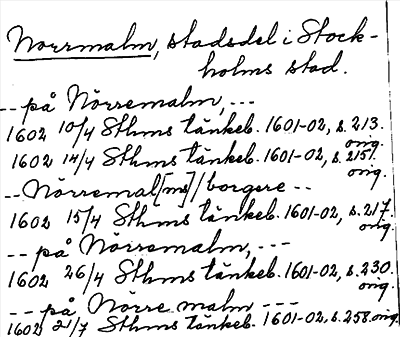 Norrmalm, stadsdel i Stock-
holms stad.
-- på Nörremalm, ---
1602 10/4 Sthms tänkeb. 1601-02, s. 213.
orig.
1602 14/4 Sthms tänkeb. 1601-02, s. 215.
orig.
-- Nörremal[ms]/borgere --
1602 15/4 Sthms tänkeb. 1601-02, s. 217.
orig.
-- på Nörremalm, ---
1602 26/4 Sthms tänkeb. 1601-02, s. 230.
orig.
-- på Nörre malm ---
1602 21/7 Sthms tänkeb. 1601-02, s. 258. orig.